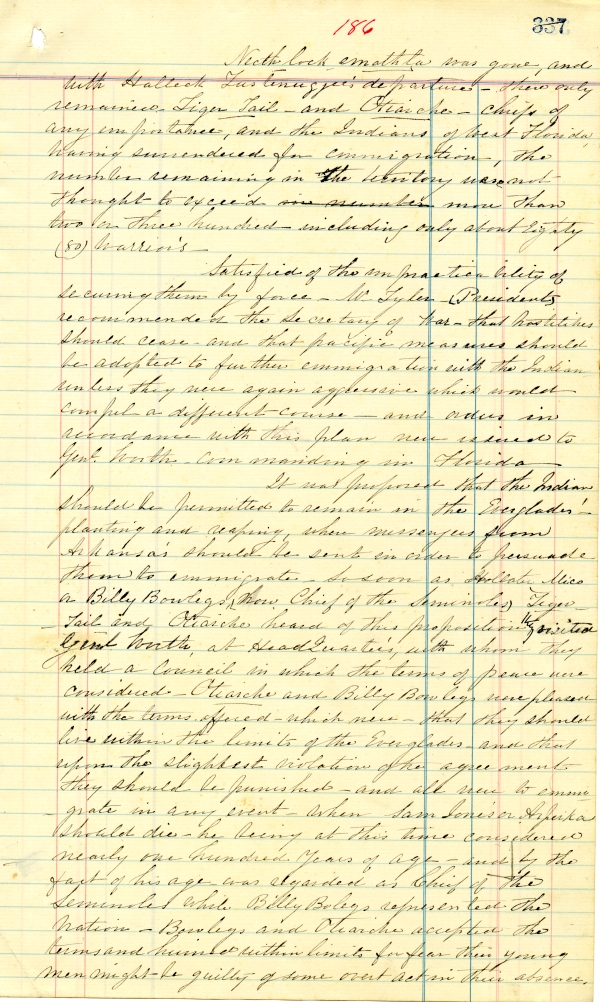 186
337
Neethlock emathla was gone, and
with Halleck Tustenuggee's departure - there only
remained Tiger Tail - and Otiarche - chiefs of
any importance, and the Indians of West Florida,
having surrendered for emmigration, the
number remaining in the teritory was not
thought to exceed in number more than
two or three hundred - including only about Eighty
(80) Warrior's -
Satisfied of the impracticability of
securing them by force - Mr Tyler - (President)
recommended the Secretary of War - that hostilities
should cease - and that pacific measures should
be adopted to further emmigration with the Indian
unless they were again aggressive which would
compel a different course - and orders in
accordance with this plan were issued to
Genl. Worth - commanding in Florida -
It was proposed that the Indian
should be permitted to remain in the Everglades -
planting and reaping, where messengers from
Arkansas should be sent in order to persuade
them to emmigrate - So soon as Holbate Mico
a Billy Bowlegs, (now Chief of the Seminoles) Tiger
Tail and Otiarche heard of this proposition they visited
Genl Worth, at Head Quarters, with whom they
held a Council in which the terms of peace were
considered - Otiarche and Billy Bowlegs were pleased
with the terms offered - which were - that they should
live within the limits of the Everglades - and that
upon the slightest violation of the agreement
they should be punished - and all were to emmi
grate in any event - when Sam Jones or Arpeika
should die - he being at this time considered
nearly one hundred years of age - and by the
fact of his age was regarded as Chief of the
Seminoles while Billy Bolegs represented the
Nation - Bowlegs and Otiarche accepted the
terms and hurried within limits for fear their young
men might be guilty of some overt act in their absence.